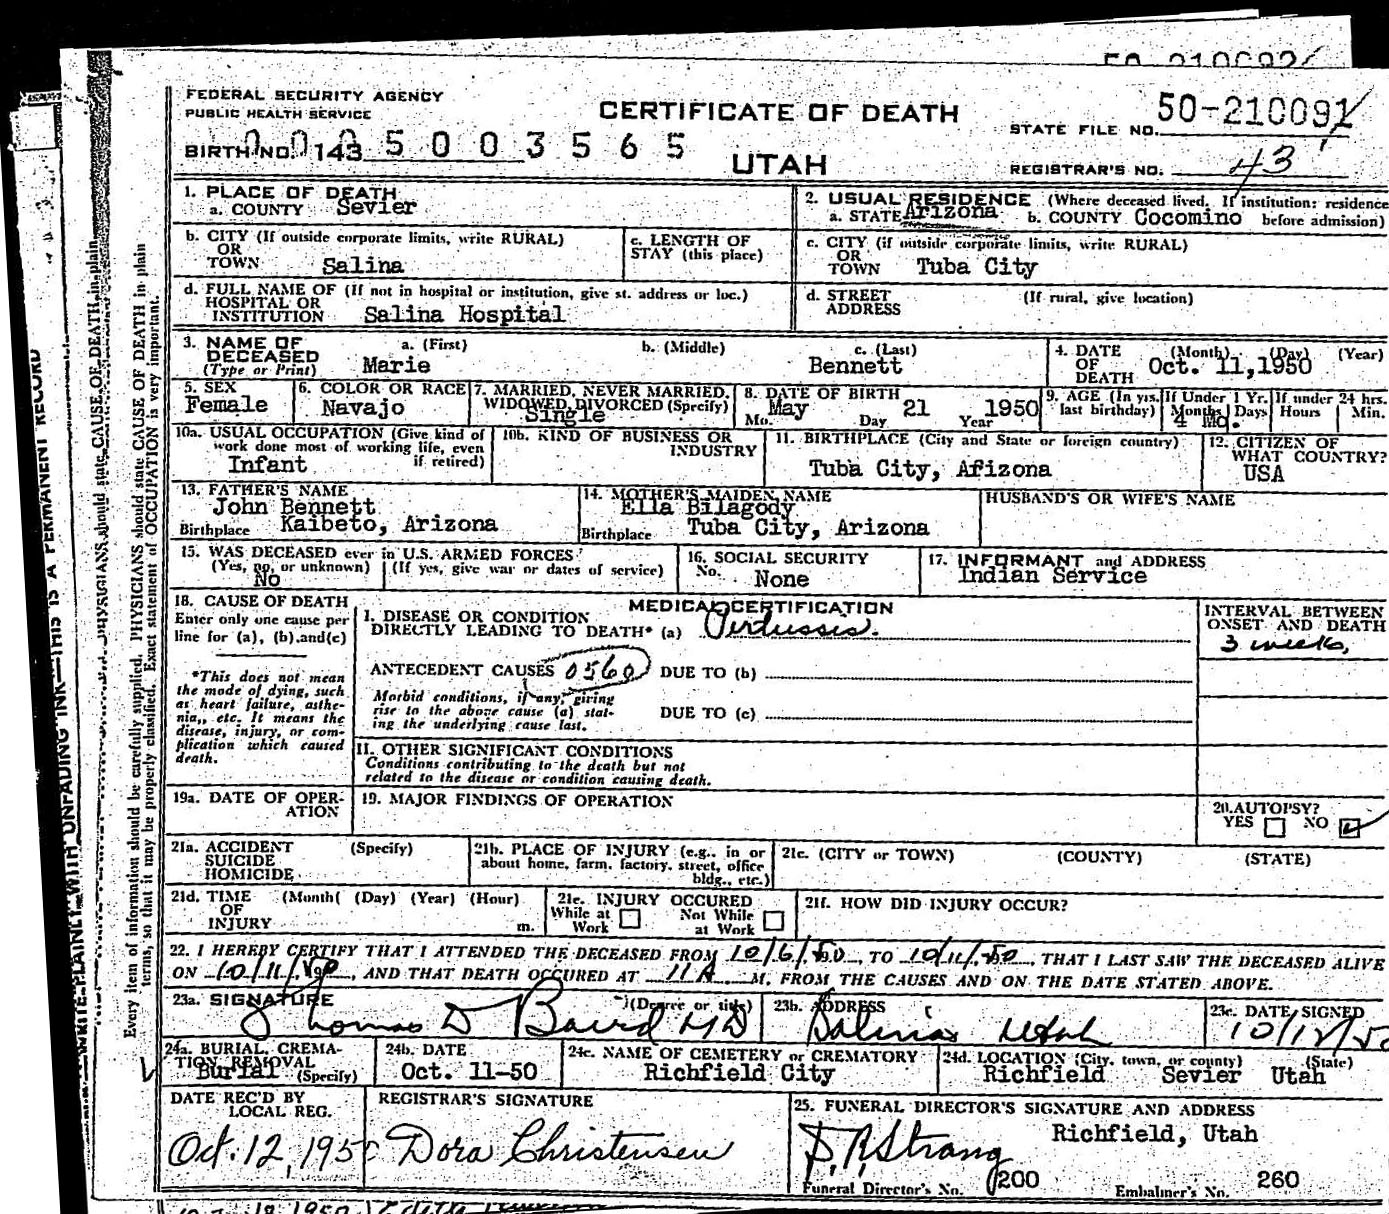 FEDERAL SECURITY AGENCY
PUBLIC HEALTH SERVICE
CERTIFICATE OF DEATH
UTAH
STATE FILE NO. 50-210091
BIRTH NO. 143
0005003565
REGISTRAR'S NO. 43
1. PLACE OF DEATH
a. COUNTY Sevier
2. USUAL RESIDENCE (Where deceased lived. If institution: residence
a. STATE Arizona b. COUNTY Cocomino before admission)
b. CITY (If outside corporate limits, write RURAL)
OR
TOWN Salina
c. LENGTH OF
STAY (this place)
c. CITY (if outside corporate limits, write RURAL)
OR
TOWN Tuba City
d. FULL NAME OF (If not in hospital or institution, give st. address or loc.)
HOSPITAL OR
INSTITUTION Salina Hospital
d. STREET (If rural, give location)
ADDRESS
3. NAME OF
DECEASED
(Type or Print)
a. (First) b. (Middle) c. (Last)
Marie Bennett
4. DATE (Month) (Day) (Year)
OF
DEATH Oct. 11,1950
5. SEX
Female
6. COLOR OR RACE
Navajo
7. MARRIED, NEVER MARRIED,
WIDOWED, DIVORCED (Specify)
Single
8. DATE OF BIRTH
May 21 1950
Mo. Day Year
9. AGE (In yrs. last birthday)
If Under 1 Yr. Months Days
4 Mo.
If under 24 hrs. Hours Min.
10a. USUAL OCCUPATION (Give kind of
work done most of working life, even
if retired)
Infant
10b. KIND OF BUSINESS OR
INDUSTRY
11. BIRTHPLACE (City and State or foreign country)
Tuba City, Afizona
12. CITIZEN OF
WHAT COUNTRY?
USA
13. FATHER'S NAME
John Bennett
Birthplace Kaibeto, Arizona
14. MOTHER'S MAIDEN NAME
Ella Bilagody
Birthplace Tuba City, Arizona
HUSBAND'S OR WIFE'S NAME
15. WAS DECEASED ever in U.S. ARMED FORCES?
(Yes, no, or unknown) (If yes, give war or dates of service)
No
16. SOCIAL SECURITY
No. None
17. INFORMANT and ADDRESS
Indian Service
18. CAUSE OF DEATH
Enter only one cause per
line for (a), (b), and (c)
*This does not mean
the mode of dying, such
as heart failure, asthe-
nia,, etc. It means the
disease, injury, or com-
plication which caused
death.
MEDICAL CERTIFICATION
I. DISEASE OR CONDITION
DIRECTLY LEADING TO DEATH* (a) Pertussis.
ANTECEDENT CAUSES 0560 DUE TO (b)
Morbid conditions, if any, giving
rise to the above cause (a) stat-
ing the underlying cause last.
DUE TO (c)
II. OTHER SIGNIFICANT CONDITIONS
Conditions contributing to the death but not
related to the disease or condition causing death.
INTERVAL BETWEEN
ONSET AND DEATH
3 weeks,
19a. DATE OF OPER-
ATION
19. MAJOR FINDINGS OF OPERATION
20. AUTOPSY?
YES NO
21a. ACCIDENT (Specify)
SUICIDE
HOMICIDE
21b. PLACE OF INJURY (e.g., in or
about home, farm, factory, street, office
bldg., etc.)
21c. (CITY or TOWN) (COUNTY) (STATE)
21d. TIME (Month( (Day) (Year) (Hour)
OF
INJURY m.
21e. INJURY OCCURED
While at Work Not While at Work
21f. HOW DID INJURY OCCUR?
22. I HEREBY CERTIFY THAT I ATTENDED THE DECEASED FROM 10/6/50, TO 10/11/50, THAT I LAST SAW THE DECEASED ALIVE
ON 10/11/50, AND THAT DEATH OCCURED AT 11A M. FROM THE CAUSES AND ON THE DATE STATED ABOVE.
23a. SIGNATURE (Degree or title)
Thomas D Baird MD
23b. ADDRESS
Salina Utah
23c. DATE SIGNED
10/12/50
24a. BURIAL, CREMA-
TION REMOVAL
Burial (Specify)
24b. DATE
Oct. 11-50
24c. NAME OF CEMETERY or CREMATORY
Richfield City
24d. LOCATION (City, town, or county) (State)
Richfield Sevier Utah
DATE REC'D BY
LOCAL REG.
Oct. 12, 1950
REGISTRAR'S SIGNATURE
Dora Christensen
25. FUNERAL DIRECTOR'S SIGNATURE AND ADDRESS
Richfield, Utah
Strang
Funeral Director's No. 200 Embalmer's No. 260
Every item of information should be carefully supplied. PHYSICIANS should state CAUSE OF DEATH in plain
terms, so that it may be properly classified. Exact statement of OCCUPATION is very important.
WRITE PLAINLY WITH UNFADING INK—THIS IS A PERMANENT RECORD
PHYSICIANS should state CAUSE OF DEATH in plain